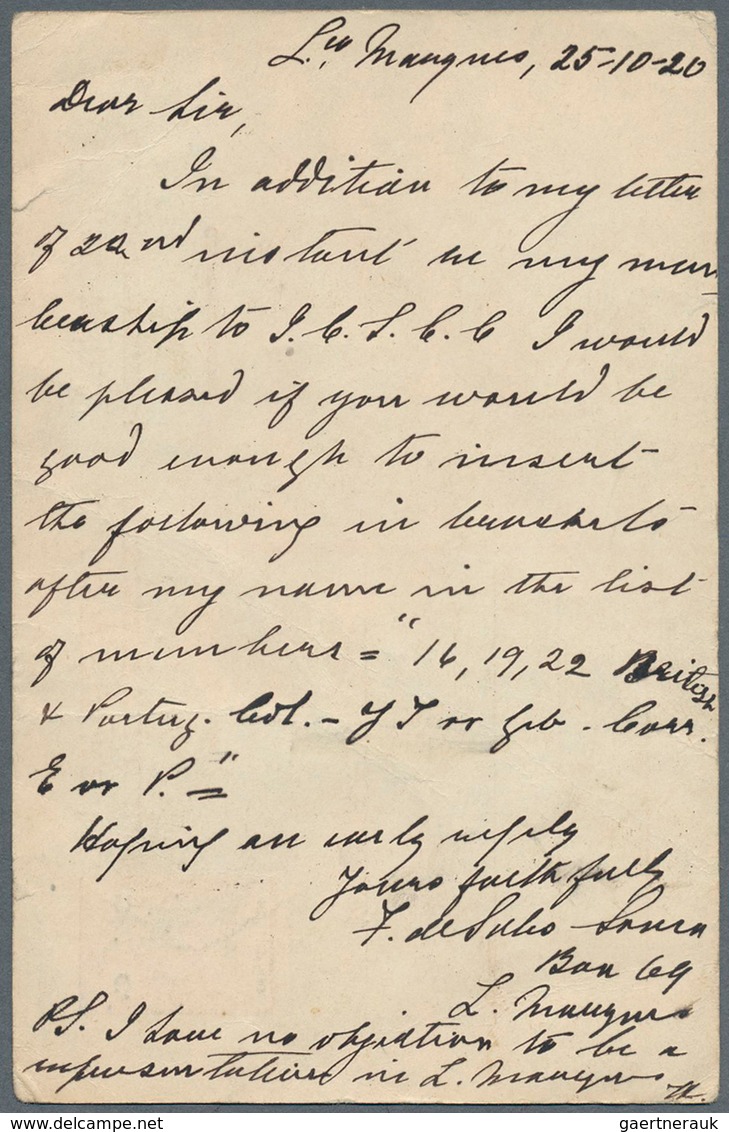 L.co Marques, 25-10-20
Dear Sir,
In addition to my letter
of 22nd instant re my mem
bership to I.C.S.C.C I would
be pleased if you would be
good enough to insert
the following in brackets
after my name in the list
of members = "16, 19, 22 British
& Portug. Col. - Y T or . Corr.
E or P."
Hoping an early reply
Yours faithfully
F. de Sousa
Box 69
L. Marques
PS. I have no objection to be a
representative in L. Marques
gaertnerauk